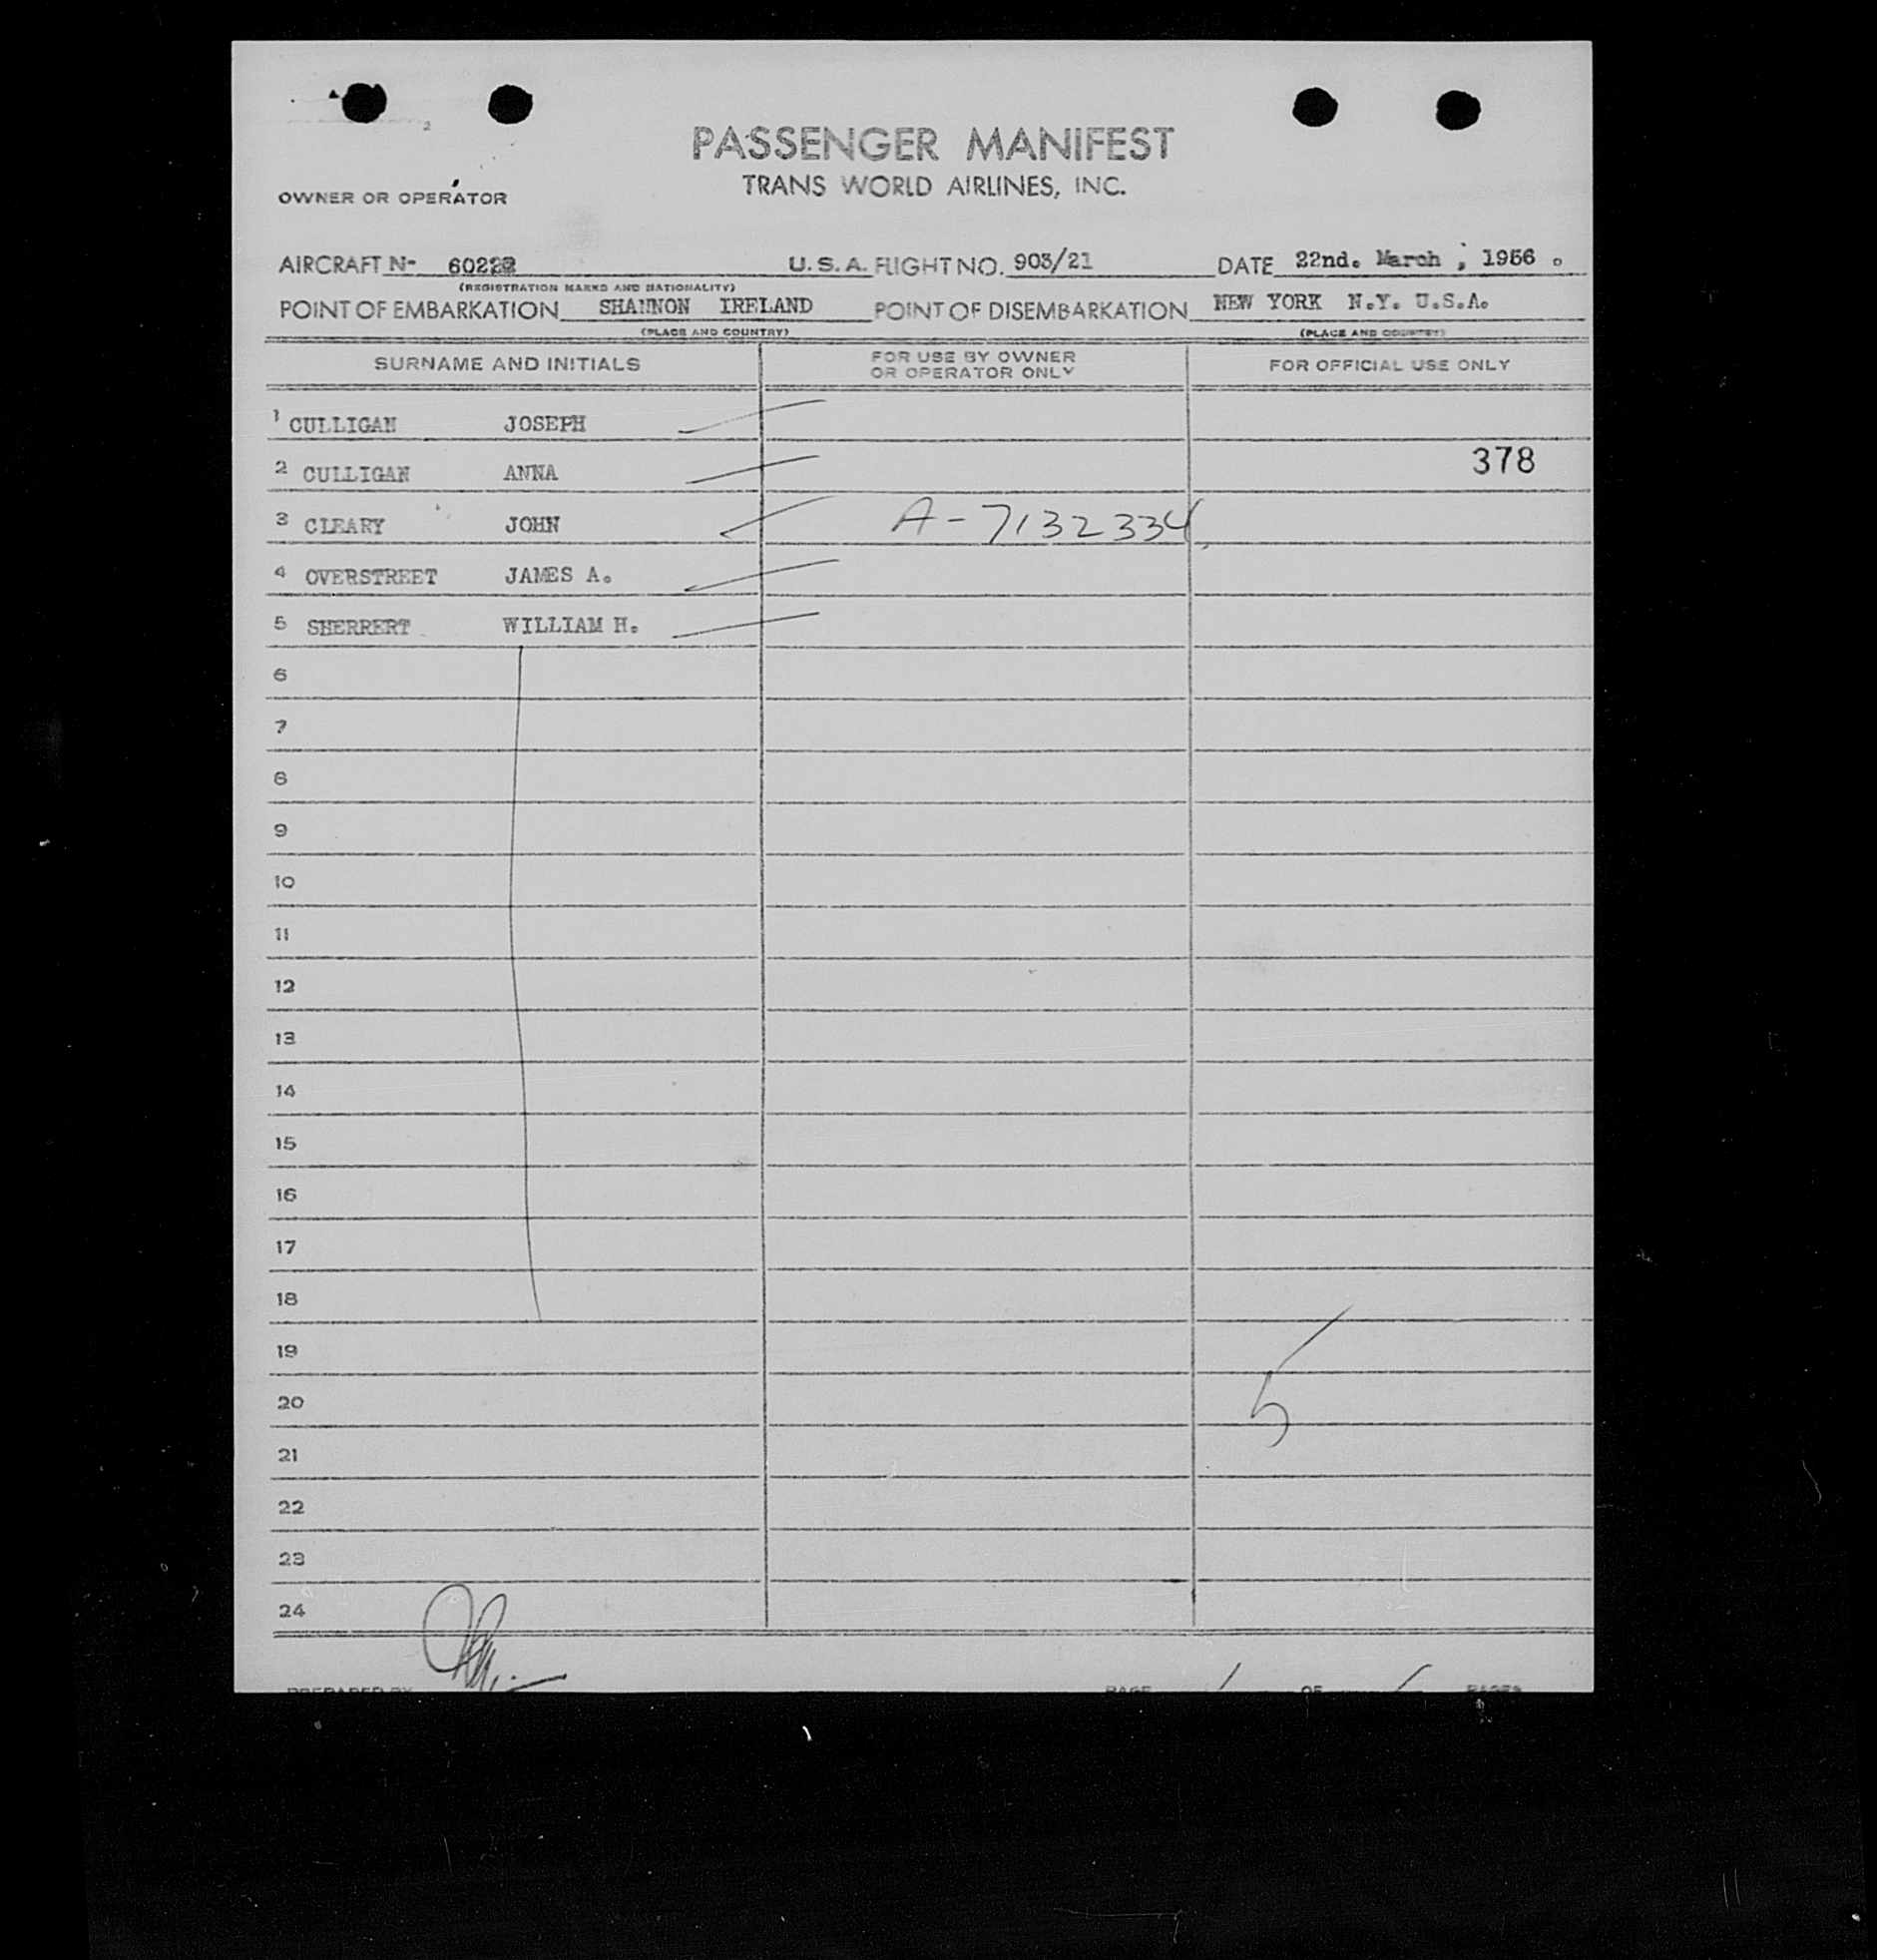 PASSENGER MANIFEST
TRANS WORLD AIRLINES, INC.
OWNER OR OPERATOR
AIRCRAFT N- U.S.A. FLIGHT NO. 903/21 DATE 22nd. March , 1956 .
(REGISTRATION MARKS AND NATIONALITY)
POINT OF EMBARKATION SHANNON IRELAND POINT OF DISEMBARKATION NEW YORK N.Y. U.S.A.
(PLACE AND COUNTRY) (PLACE AND COUNTRY)
SURNAME AND INITIALS FOR USE BY OWNER OR OPERATOR ONLY FOR OFFICIAL USE ONLY
1 CULLIGAN JOSEPH
2 CULLIGAN ANNA 378
3 CLEARY JOHN A-7132334
4 OVERSTREET JAMES A.
5 SHERRERT WILLIAM H.
6
7
8
9
10
11
12
13
14
15
16
17
18
19
20 5
21
22
23
24
PREPARED BY PAGE 1 OF PAGES